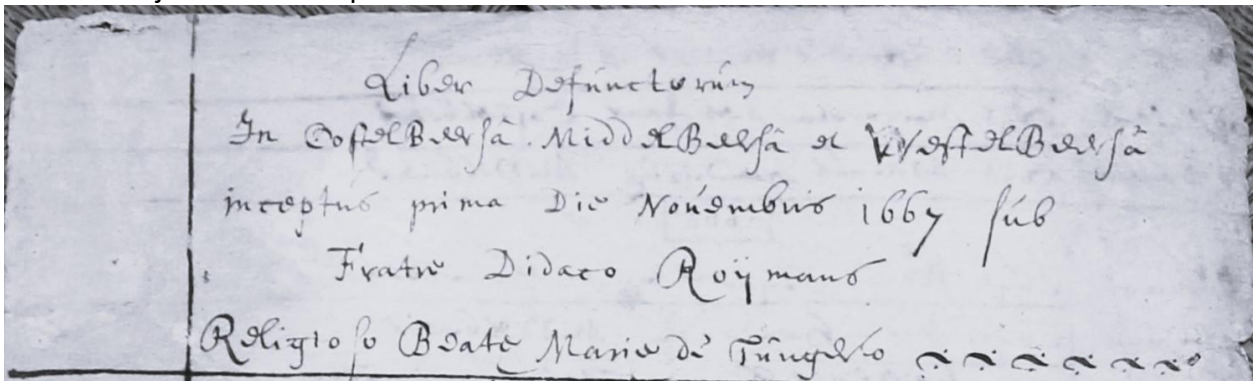 Liber Defunctorum
In OostelBeersâ . MiddelBeersâ et WestelBeersâ
inceptus prima Die Novembris 1667 sub
Fratre Didaco Roÿmans
Religioso Beatę Marię de Tungerlo